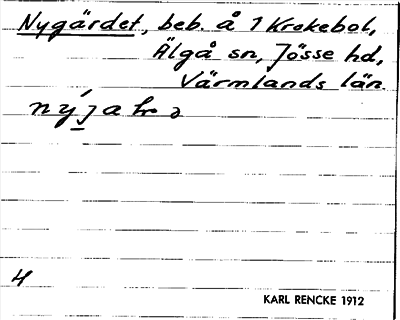 Nygärdet, beb. å 1 Krokebol,
Älgå sn, Jösse hd,
Värmlands län.
4
KARL RENCKE 1912